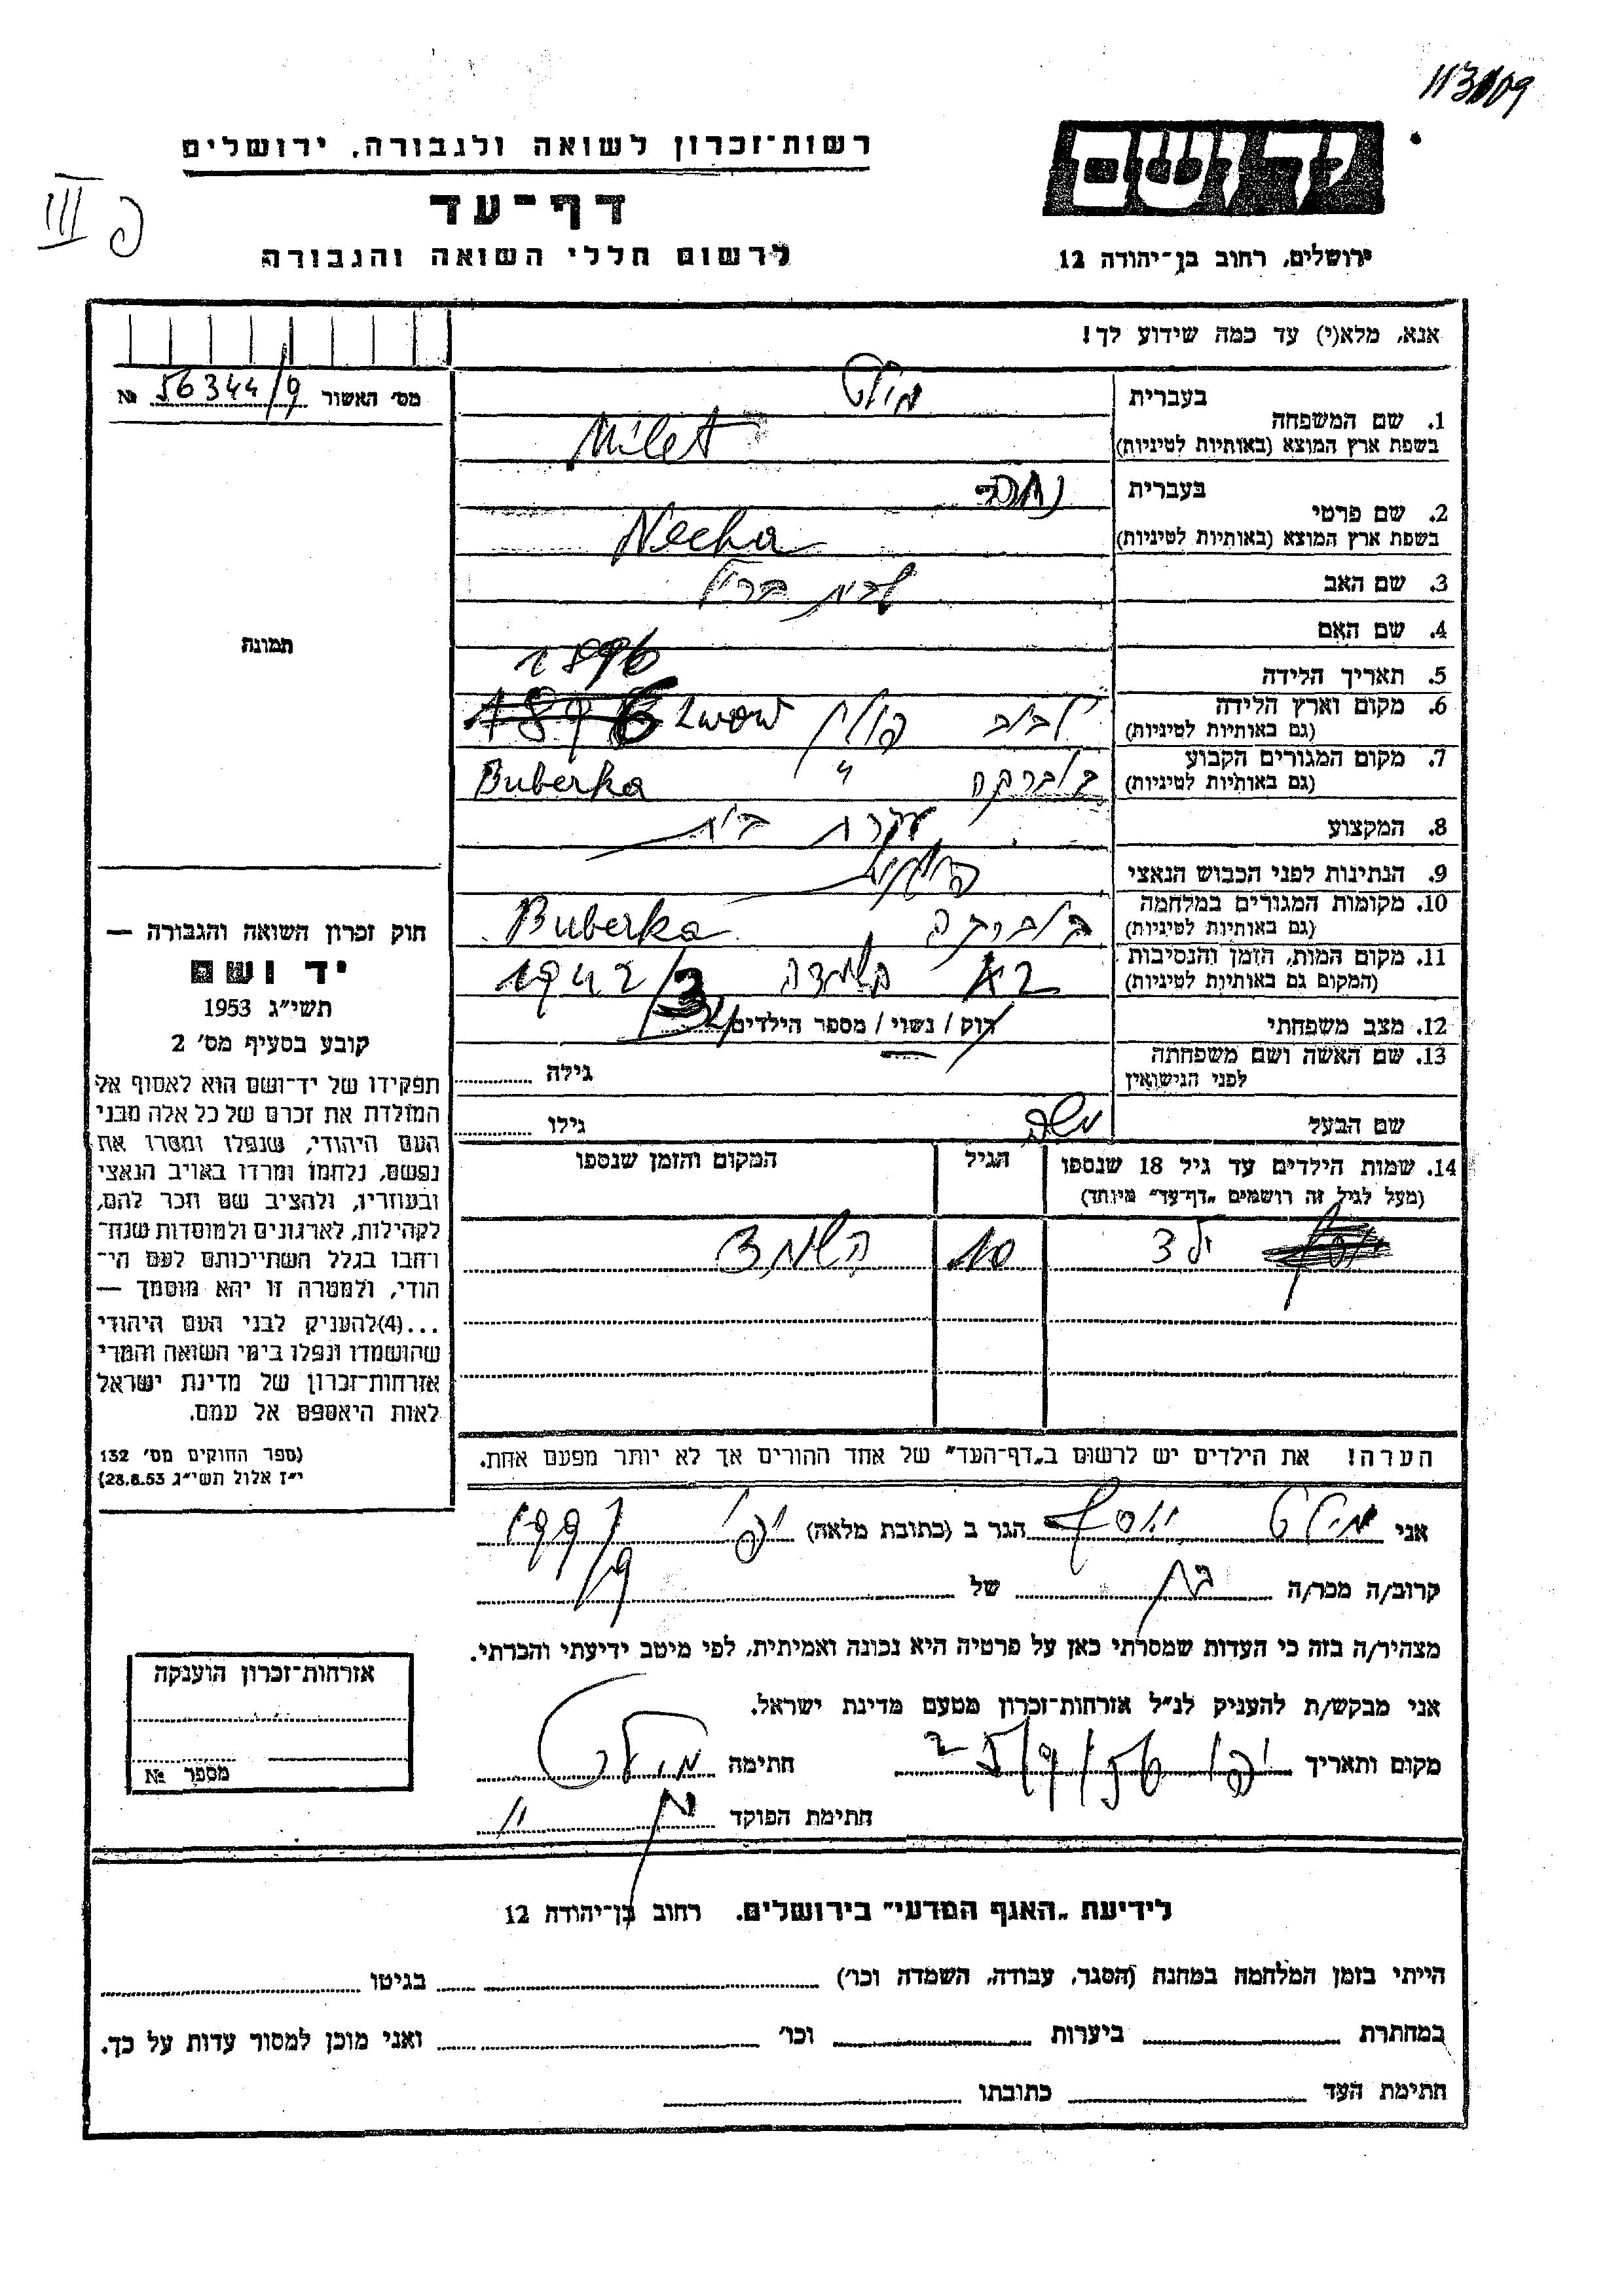 113109
יד ושם
רשות־זכרון לשואה ולגבורה, ירושלים
דף־עד
לרשום חללי השואה והגבורה
ירושלים, רחוב בן־יהודה 12
פ III
אנא, מלא(י) עד כמה שידוע לך!
מס׳ האשור 56344/9 №
תמונה
1. שם המשפחה
בעברית מילט
בשפת ארץ המוצא (באותיות לטיניות) Milet
2. שם פרטי
בעברית נחה
בשפת ארץ המוצא (באותיות לטיניות) Necha
3. שם האב
4. שם האם
5. תאריך הלידה 1896
6. מקום וארץ הלידה
(גם באותיות לטיניות) לבוב פולין Lwow
7. מקום המגורים הקבוע
(גם באותיות לטיניות) בוברקה " Buberka
8. המקצוע עקרת בית
9. הנתינות לפני הכבוש הנאצי פולנית
10. מקומות המגורים במלחמה
(גם באותיות לטיניות) בוברקה Buberka
11. מקום המות, הזמן והנסיבות
(המקום גם באותיות לטיניות) השמדה 1942/3
12. מצב משפחתי רוק / נשוי / מספר הילדים
13. שם האשה ושם משפחתה
לפני הנישואין גילה
שם הבעל משה גילו
14. שמות הילדים עד גיל 18 שנספו
(מעל לגיל זה רושמים „דף־עד״ מיוחד)
הגיל
המקום והזמן שנספו
ילד 10 השמד
הערה! את הילדים יש לרשום ב„דף־העד״ של אחד ההורים אך לא יותר מפעם אחת.
חוק זכרון השואה והגבורה —
יד ושם
תשי״ג 1953
קובע בסעיף מס׳ 2
תפקידו של יד־ושם הוא לאסוף אל
המולדת את זכרם של כל אלה מבני
העם היהודי, שנפלו ומסרו את
נפשם, נלחמו ומרדו באויב הנאצי
ובעוזריו, ולהציב שם וזכר להם,
לקהילות, לארגונים ולמוסדות שנח־
רחבו בגלל השתייכותם לעם הי־
הודי, ולמטרה זו יהא מוסמך —
...(4)להעניק לבני העם היהודי
שהושמדו ונפלו בימי השואה והמרי
אזרחות־זכרון של מדינת ישראל
לאות היאספם אל עמם.
(ספר החוקים מס׳ 132
י״ז אלול תשי״ג 28.8.53)
אני מילט יוסף הגר ב (כתובת מלאה) יפו
קרוב/ה מכר/ה בן של
מצהיר/ה בזה כי העדות שמסרתי כאן על פרטיה היא נכונה ואמיתית, לפי מיטב ידיעתי והכרתי.
אני מבקש/ת להעניק לנ״ל אזרחות־זכרון מטעם מדינת ישראל.
מקום ותאריך יפו חתימה מילט
חתימת הפוקד
אזרחות־זכרון הוענקה
מספר №
לידיעת „האגף המדעי״ בירושלים. רחוב בן־יהודה 12
הייתי בזמן המלחמה במחנה (הסגר, עבודה, השמדה וכו׳) בגיטו
במחתרת ביערות וכו׳ ואני מוכן למסור עדות על כך.
חתימת העד כתובתו